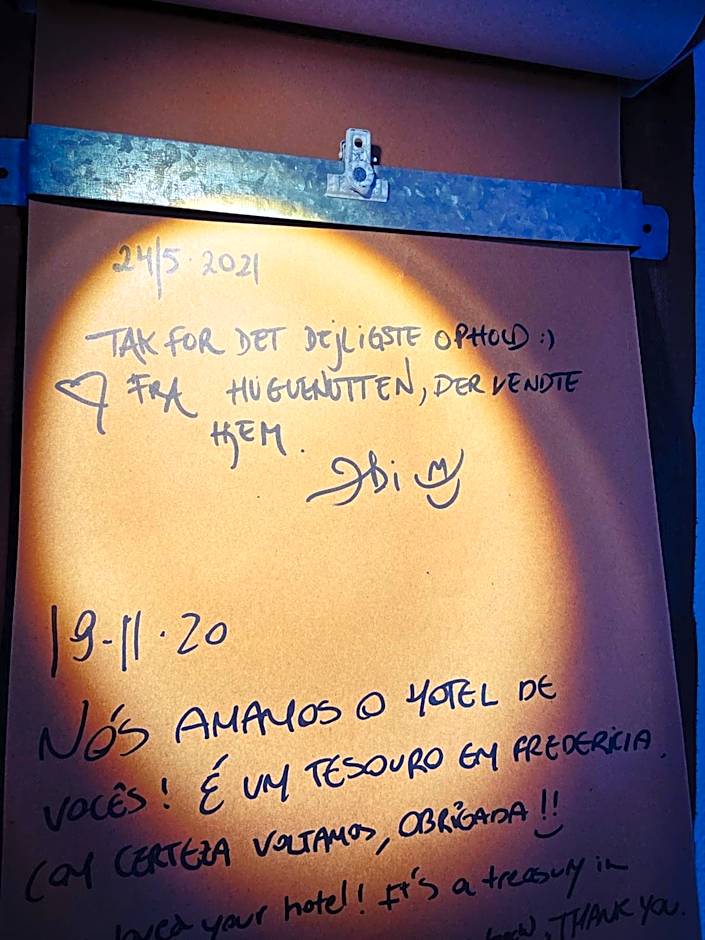 24/5-2021
TAK FOR DET DEJLIGSTE OPHOLD :)
FRA HUGUENOTTEN, DER VENDTE
HJEM.
19-11-20
NÓS AMAMOS O HOTEL DE
VOCÊS! É UM TESOURO EM FREDERICIA.
COM CERTEZA VOLTAMOS, OBRIGADA!!
loved your hotel! It's a treasury in
THANK YOU.